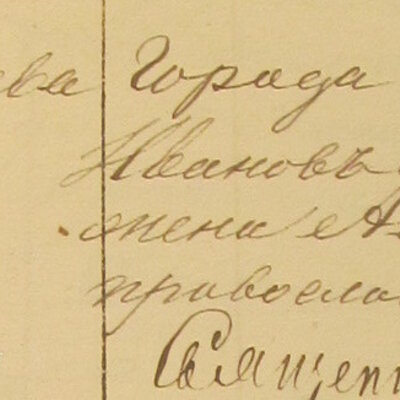 ева Города
Ивановъ
жена А
правосла
Священ